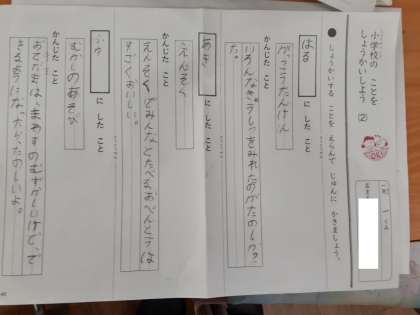 小学校の ことを
しょうかいしよう (2)
● しょうかいする ことを えらんで じゅんに かきましょう。
はる に した こと
がっこうたんけん
かんじた こと
いろんなきょうしつをみれたのがたのしかっ
た。
あき に した こと
えんそく
かんじた こと
えんそくでみんなとたべるおべんとうは
すごくおいしい。
ふゆ に した こと
むかしのあそび
かんじた こと
おてだまは、まわすのむずかしいけど、で
きるようになったら、たのしいよ。